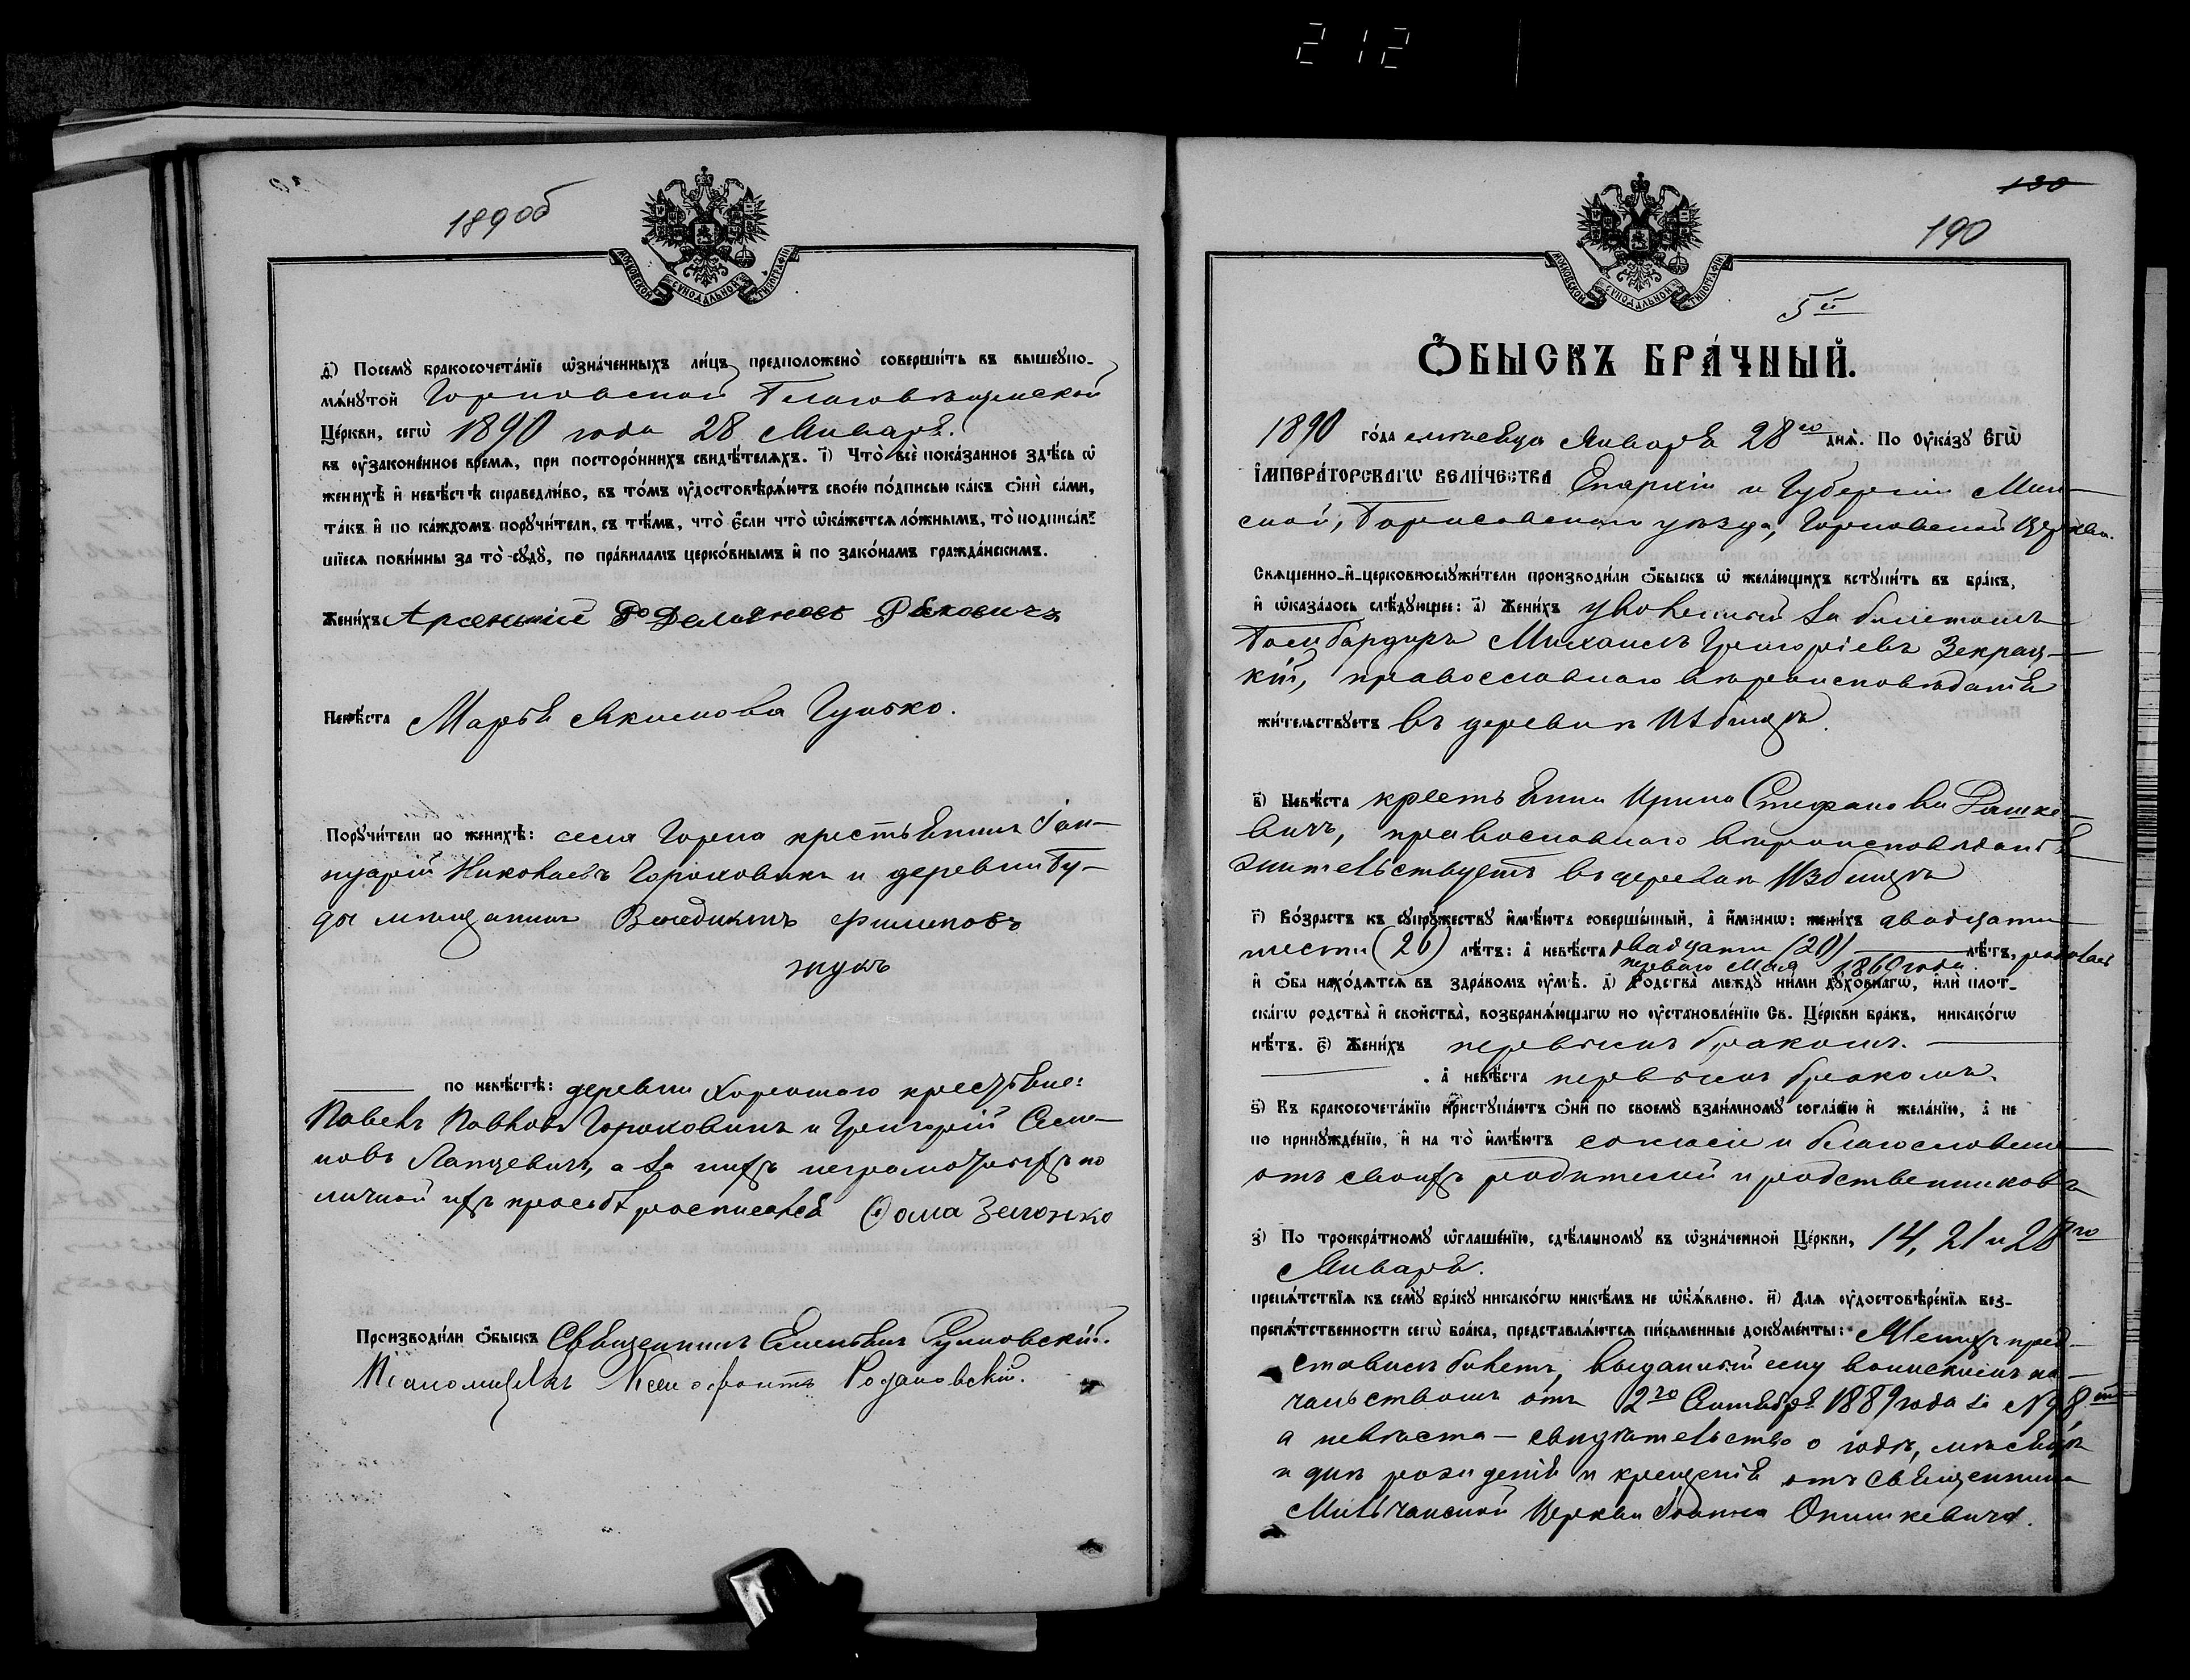 212
189 об
МОСКОВСКОЙ СѴНОДАЛЬНОЙ ТИПОГРАФІИ
д҃) Посемꙋ бракосочетанїе ѡзначенныхъ лицъ предположено совершить въ вышеꙋпо-
мянꙋтой Горновской Благовѣщенской
Церкви, сегѡ 1890 года 28 Января.
въ ᲂузаконенное время, при постороннихъ свидѣтеляхъ. і҃) Что все показанное здѣсь ѡ
женихѣ и невѣстѣ справедливо, въ томъ ᲂудостовѣряютъ своею подписью какъ ѻни сами,
такъ и по каждомъ порꙋчители, съ тѣмъ, что если что ѡкажется ложнымъ, то подписав-
шїеся повинны за то сꙋдꙋ, по правиламъ церковнымъ и по законамъ гражданскимъ.
Женихъ Арсеньтій Дельяновъ Раковичъ
Невѣста Марья Акимова Гулько.
Порꙋчители по женихѣ: села Горна крестьянинъ Іан-
нуарій Николаевъ Гороховикъ и деревни Бу-
ды мѣщанинъ Венедиктъ Филиповъ
жукъ
по невѣстѣ: деревни Хорошаго крестьяне:
Павелъ Павловъ Гороховикъ и Григорій Семе-
новъ Лапцевичъ, а за нихъ неграмотныхъ по
личной ихъ просьбѣ росписался Ѳома
Производили ѻбыскъ Священникъ
Псаломщикъ Ксенофонтъ
130
190
МОСКОВСКОЙ СѴНОДАЛЬНОЙ ТИПОГРАФІИ
5й
ѺБЫСКЪ БРАЧНЫЙ.
1890 года мѣсяца Января 28го дня. По ᲂуказꙋ ЕГѠ
ІМПЕРАТОРСКАГѠ ВЕЛИЧЕСТВА Епархіи и Губерніи Мин-
ской, Борисовскаго уѣзда, Горновской Церкви.
Священно-и-церковнослꙋжители производили ѻбыскъ ѡ желающихъ встꙋпить въ бракъ,
и ѡказалось слѣдꙋющее: а҃) Женихъ уволенный по билетомъ
Бомбардиръ Михаилъ Григоріевъ Зекрац-
кій, православнаго вѣроисповѣданія
жительствꙋетъ въ деревни Избищѣ.
в҃) Невѣста крестьянка Ирина Стефанова Дашке-
вичъ, православнаго вѣроисповѣданія
жительствуетъ въ деревни Избищѣ
г҃) Возрастъ къ сꙋпрꙋжествꙋ имѣютъ совершенный, а именнѡ: женихъ двадцати
шести (26) лѣтъ: а невѣста двадцати (20) лѣтъ, родилась
перваго Мая 1869 года.
и ѻба находятся въ здравомъ ᲂумѣ. д҃) Родства междꙋ ними дꙋховнагѡ, или плот-
скагѡ родства и свойства, возбраняющагѡ по ᲂустановленїю Св. Церкви бракъ, никакогѡ
нѣтъ. є҃) Женихъ первымъ бракомъ.
а невѣста первымъ бракомъ.
ѕ҃) Къ бракосочетанїю пристꙋпаютъ ѻни по своемꙋ взаимномꙋ согласїю и желанїю, а не
по принꙋжденїю, и на то имѣютъ согласіе и благословеніе
отъ своихъ родителей и родственниковъ
з҃) По троекратномꙋ ѡглашенїю, сдѣланномꙋ въ ѡзначенной Церкви, 14, 21 и 28го
Января.
препятствїя къ семꙋ бракꙋ никакогѡ никѣмъ не ѡбъявлено. и҃) Для ᲂудостовѣренїя без-
препятственности сегѡ брака, представляются письменные докꙋменты: Женихъ пред-
ставилъ билетъ, выданный ему воинскимъ на-
чальствомъ отъ 2го Сентября 1889 года за №
а невѣста - свидѣтельство о годѣ, мѣсяцѣ
и днѣ рожденія и крещенія отъ священника
Мильчанской Церкви Іоанна Онишкевича.